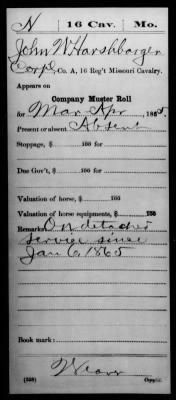 N | 16 Cav. | Mo.
John W Harshbarger
Corpl, Co. A, 16 Reg't Missouri Cavalry.
Appears on
Company Muster Roll
for Mar Apr, 1865.
Present or absent Absent
Stoppage, $ 100 for
Due Gov't, $ 100 for
Valuation of horse, $ 100
Valuation of horse equipments, $ 100
Remarks: On detached
service since
Jan 6, 1865
Book mark:
(358)
Copyist.